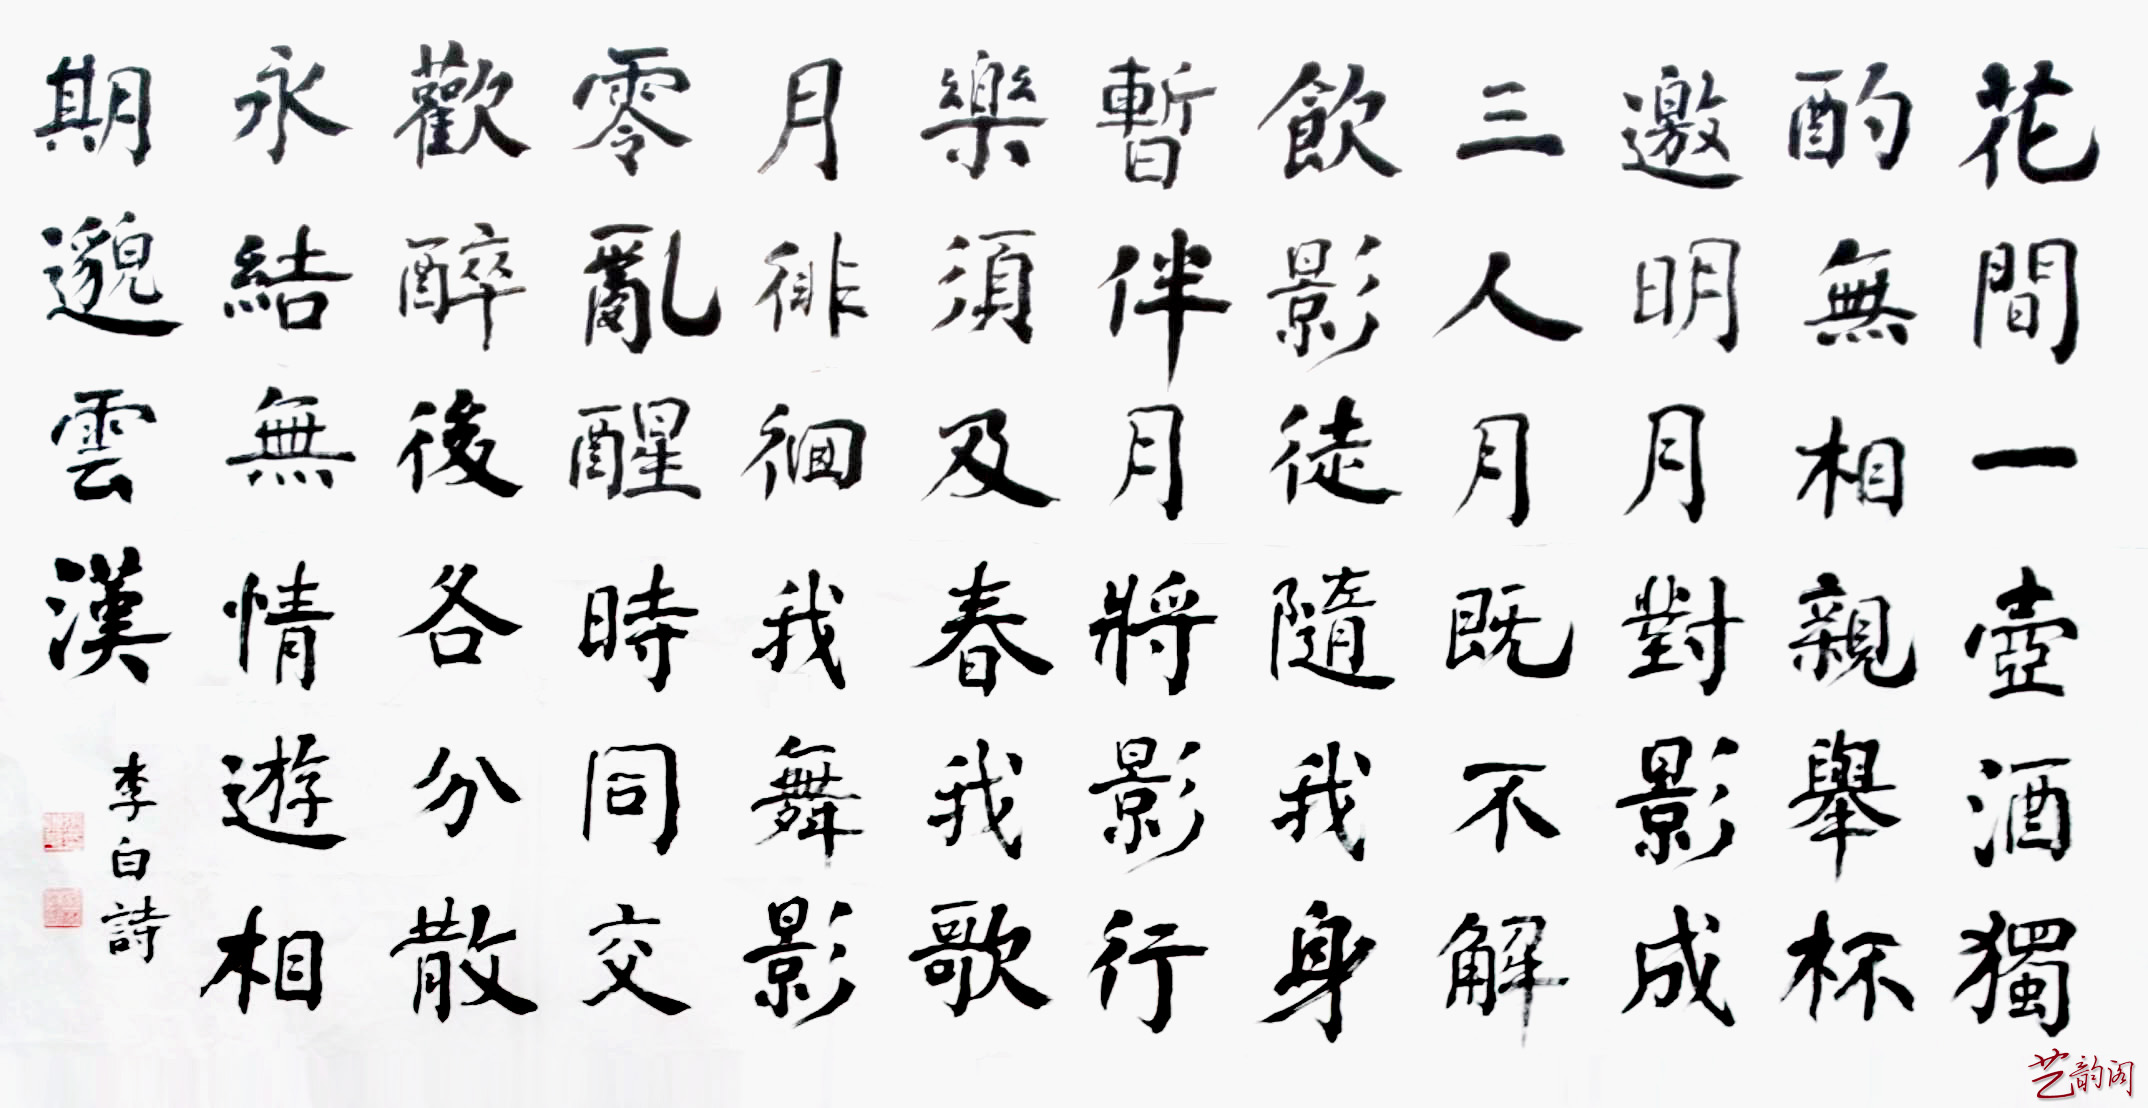 花間一壺酒獨
酌無相親舉杯
邀明月對影成
三人月既不解
飲影徒隨我身
暫伴月將影行
樂須及春我歌
月徘徊我舞影
零亂醒時同交
歡醉後各分散
永結無情遊相
期邈雲漢
李白詩
艺韵阁